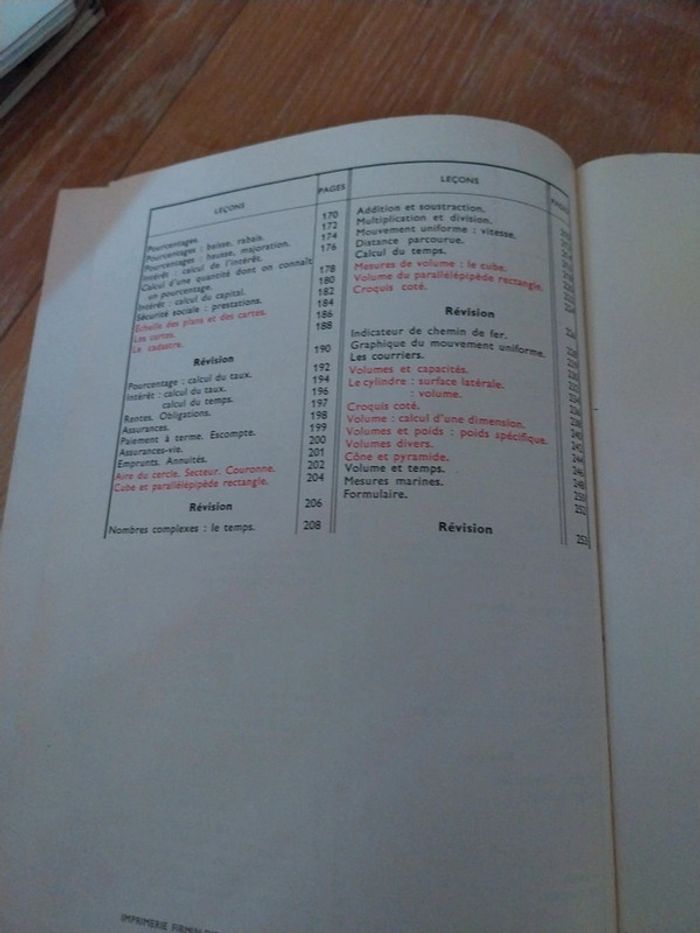 LEÇONS PAGES
Pourcentages. 170
Pourcentages : baisse, rabais. 172
Pourcentages : hausse, majoration. 174
Intérêt : calcul de l'intérêt. 176
Calcul d'une quantité dont on connaît
un pourcentage. 178
Intérêt : calcul du capital. 180
Sécurité sociale : prestations. 182
Echelle des plans et des cartes. 184
Les cartes. 186
Le cadastre. 188
Révision 190
Pourcentage : calcul du taux. 192
Intérêt : calcul du taux. 194
calcul du temps. 196
Rentes. Obligations. 197
Assurances. 198
Paiement à terme. Escompte. 199
Assurances-vie. 200
Emprunts. Annuités. 201
Aire du cercle. Secteur. Couronne. 202
Cube et parallélépipède rectangle. 204
Révision 206
Nombres complexes : le temps. 208
LEÇONS PAGES
Addition et soustraction.
Multiplication et division.
Mouvement uniforme : vitesse.
Distance parcourue.
Calcul du temps.
Mesures de volume : le cube.
Volume du parallélépipède rectangle.
Croquis coté.
Révision
Indicateur de chemin de fer.
Graphique du mouvement uniforme. 228
Les courriers. 230
Volumes et capacités. 232
Le cylindre : surface latérale. 234
: volume. 236
Croquis coté. 238
Volume : calcul d'une dimension. 240
Volumes et poids : poids spécifique. 242
Volumes divers. 244
Cône et pyramide. 246
Volume et temps. 248
Mesures marines. 250
Formulaire. 252
Révision 253
IMPRIMERIE